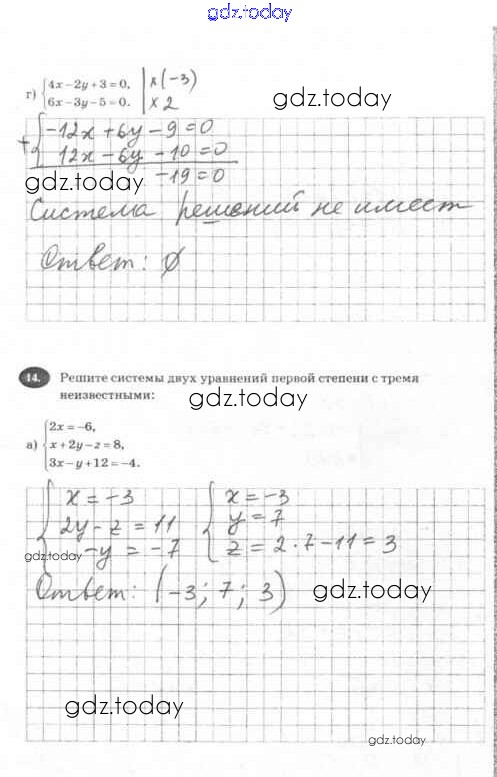 gdz.today
г) {4x − 2y + 3 = 0, | × (−3)
6x − 3y − 5 = 0. | × 2
gdz.today
+ {−12x + 6y − 9 = 0
12x − 6y − 10 = 0
gdz.today −19 = 0
Система решений не имеет
Ответ: ∅
14. Решите системы двух уравнений первой степени с тремя
неизвестными:
gdz.today
а) {2x = −6,
x + 2y − z = 8,
3x − y + 12 = −4.
{x = −3 {x = −3
2y − z = 11 y = 7
gdz.today −y = −7 z = 2 · 7 − 11 = 3
Ответ: (−3; 7; 3) gdz.today
gdz.today
gdz.today